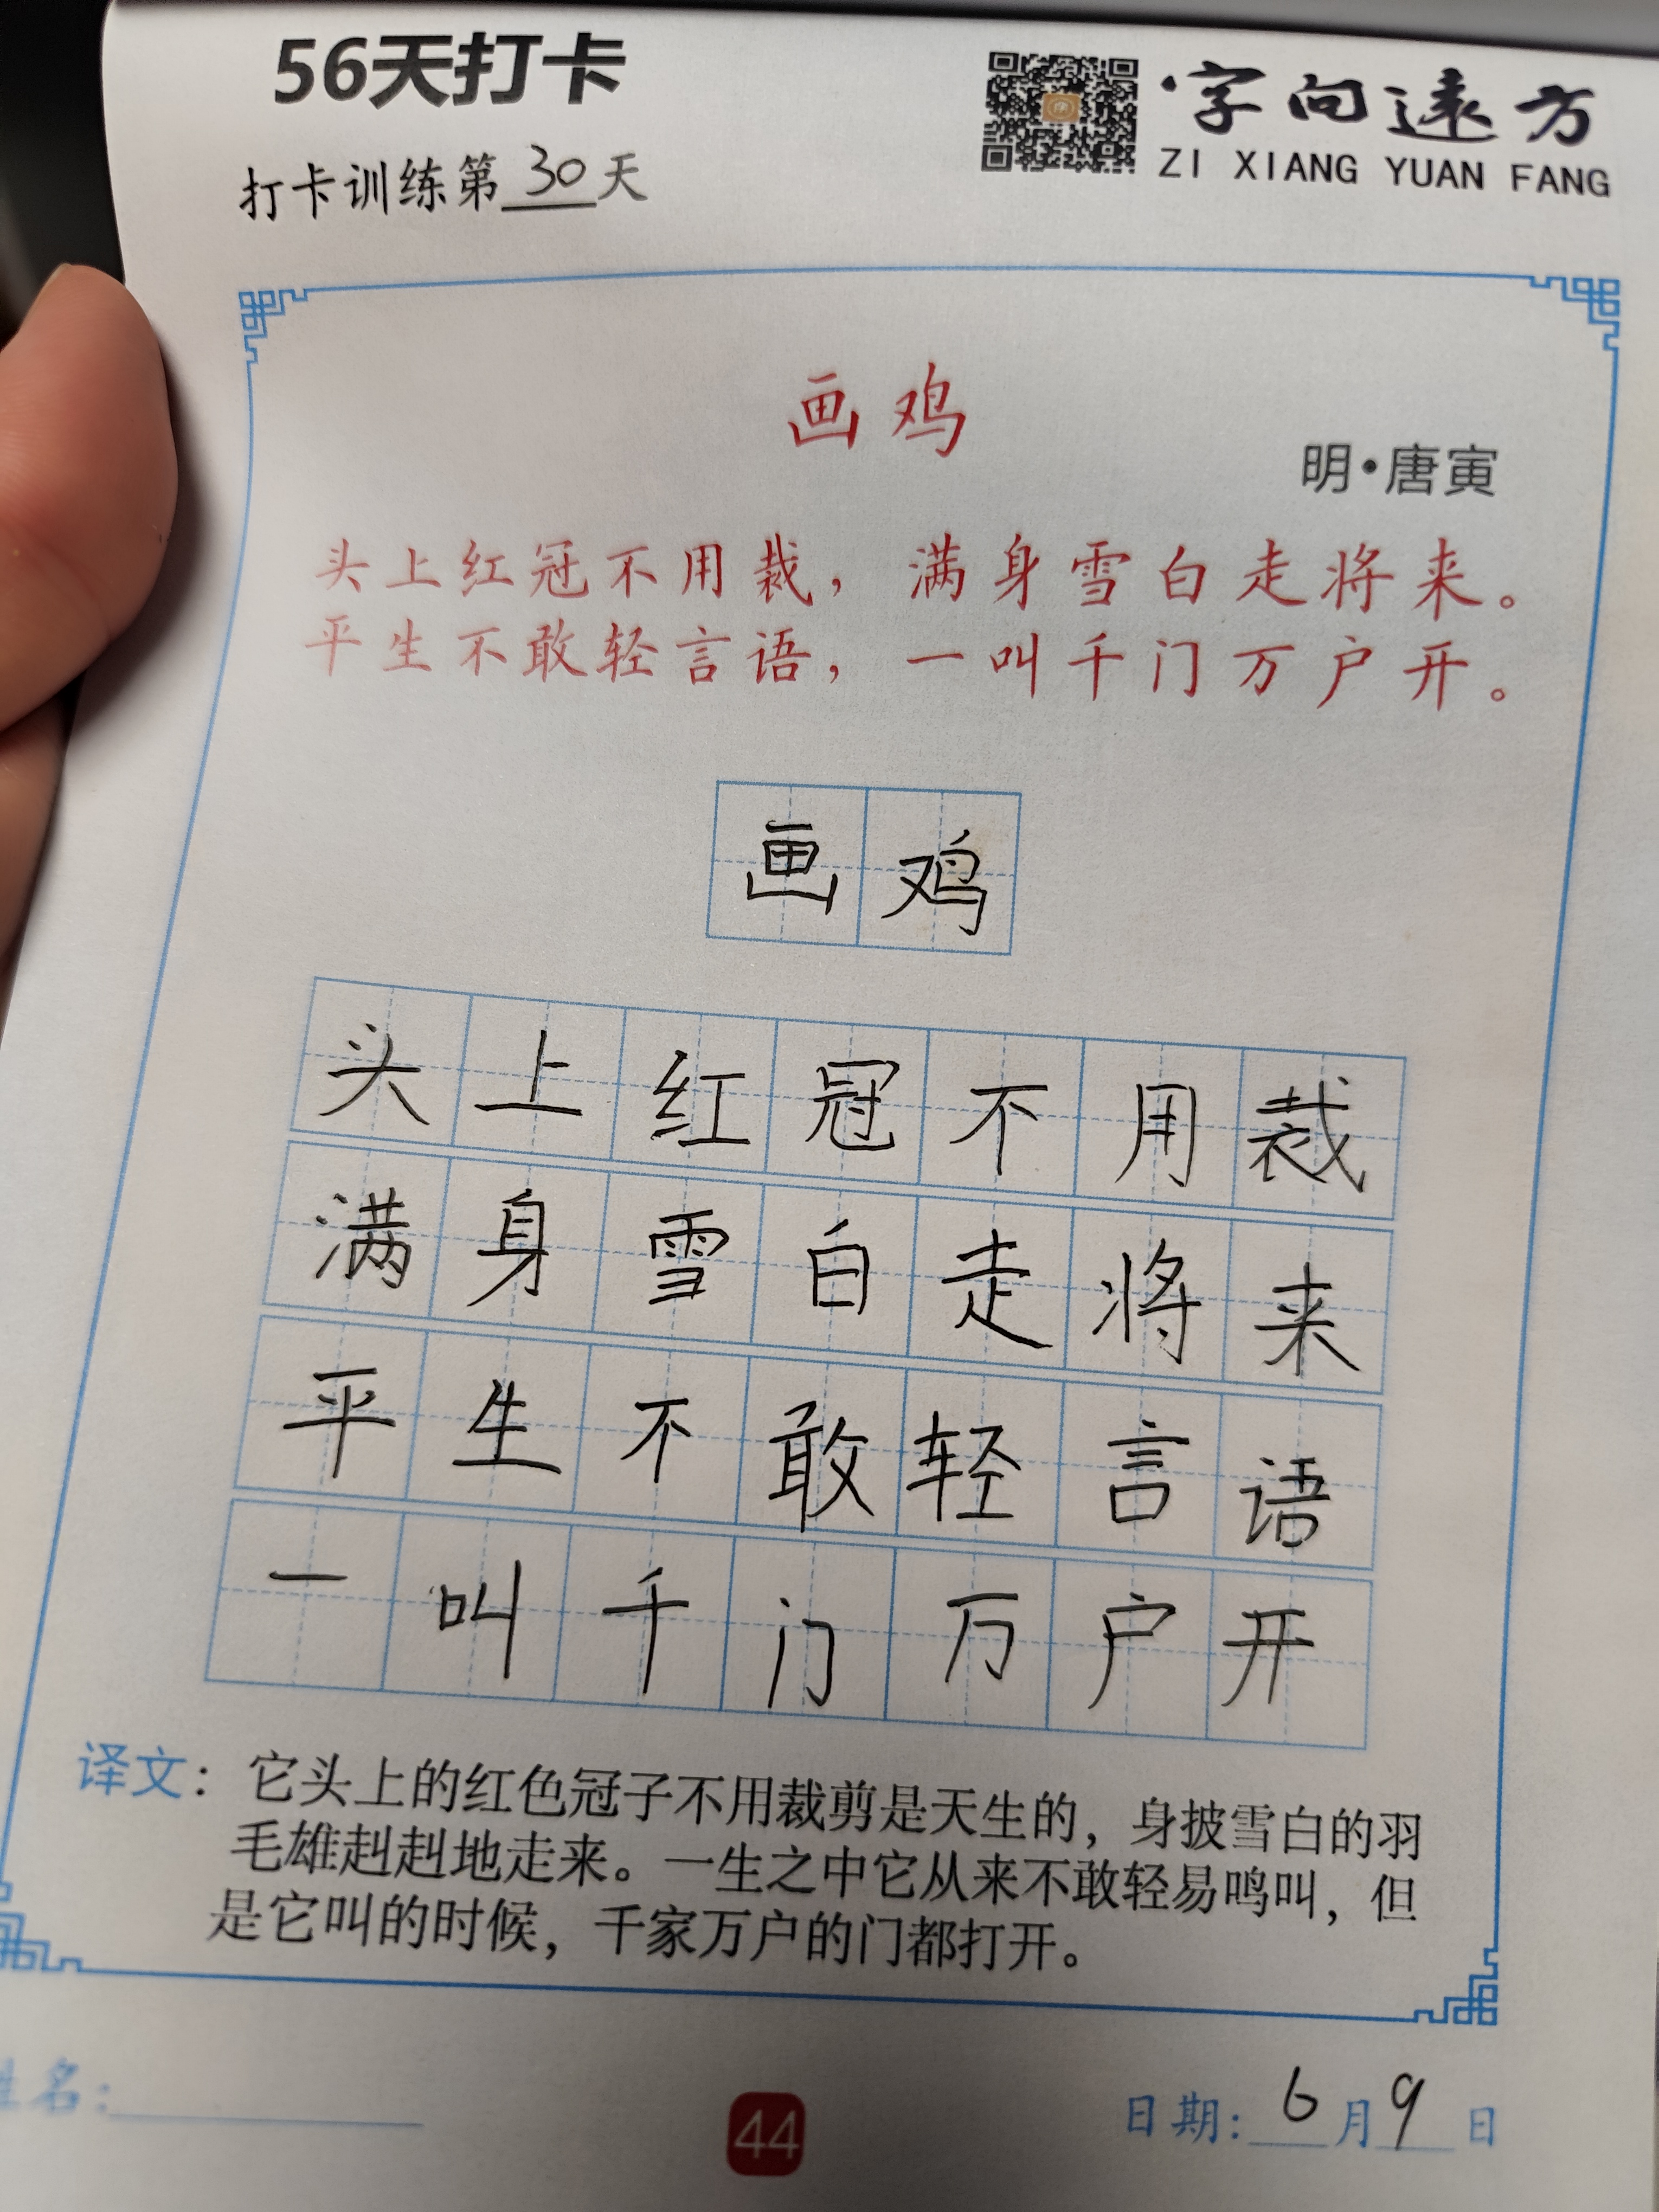 56天打卡
字向远方
ZI XIANG YUAN FANG
打卡训练第30天
画鸡
明·唐寅
头上红冠不用裁，满身雪白走将来。
平生不敢轻言语，一叫千门万户开。
画鸡
头上红冠不用裁
满身雪白走将来
平生不敢轻言语
一叫千门万户开
译文：它头上的红色冠子不用裁剪是天生的，身披雪白的羽
毛雄赳赳地走来。一生之中它从来不敢轻易鸣叫，但
是它叫的时候，千家万户的门都打开。
姓名：
44
日期：6月9日